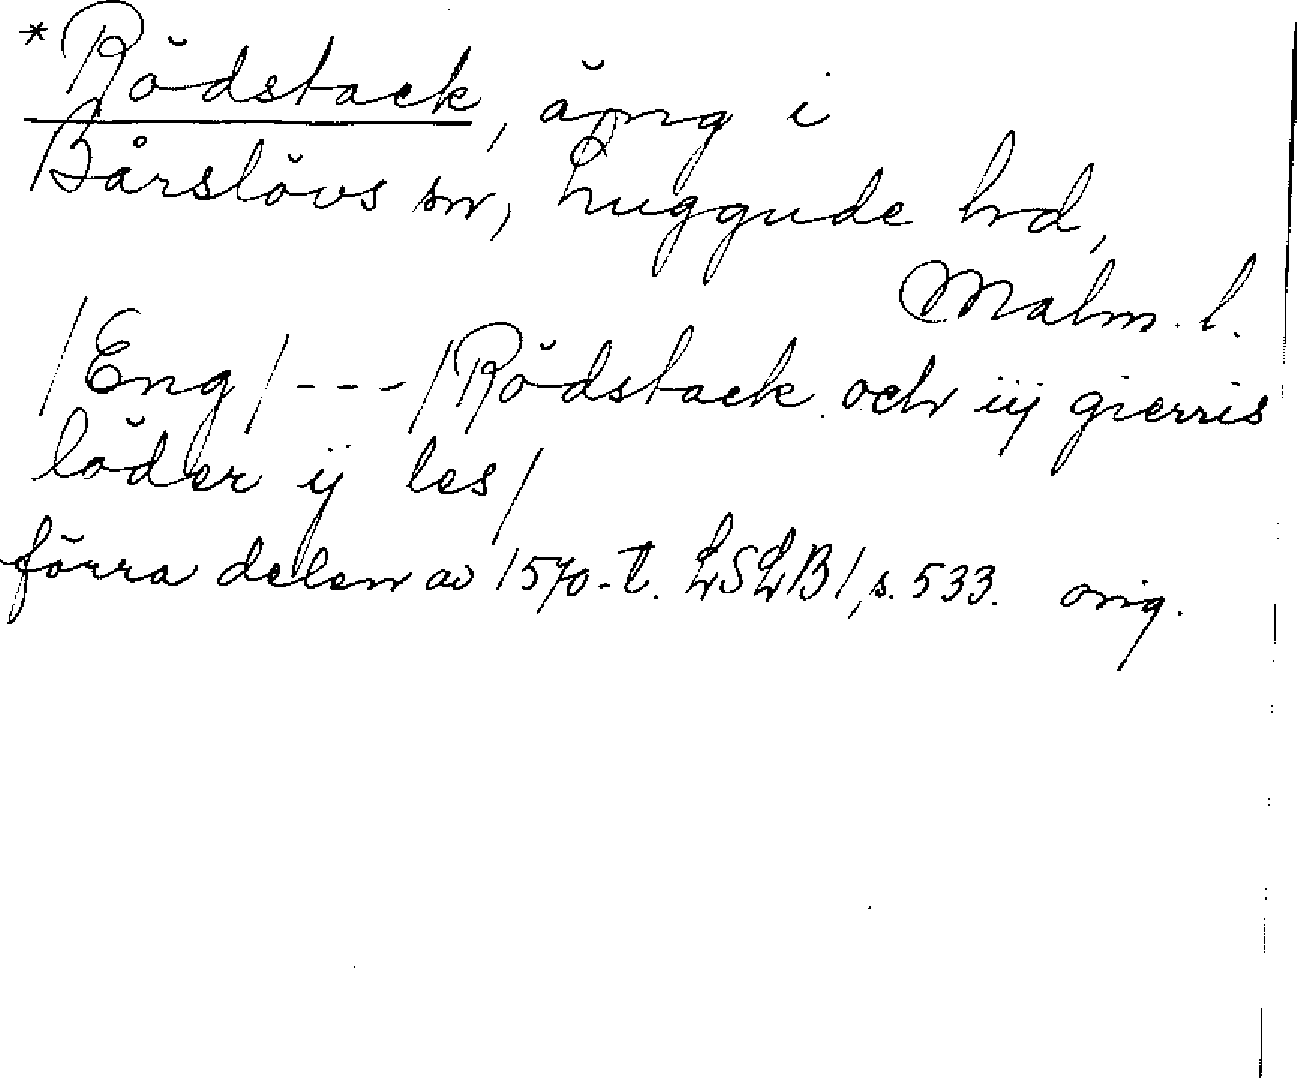 *Rödstack, äng i
Bårslövs sn, Luggude hd,
Malm. l.
/Eng/---/Rödstack och iij gierris
löder ij les/
förra delen av 1570-t. LSLB1, s. 533. orig.